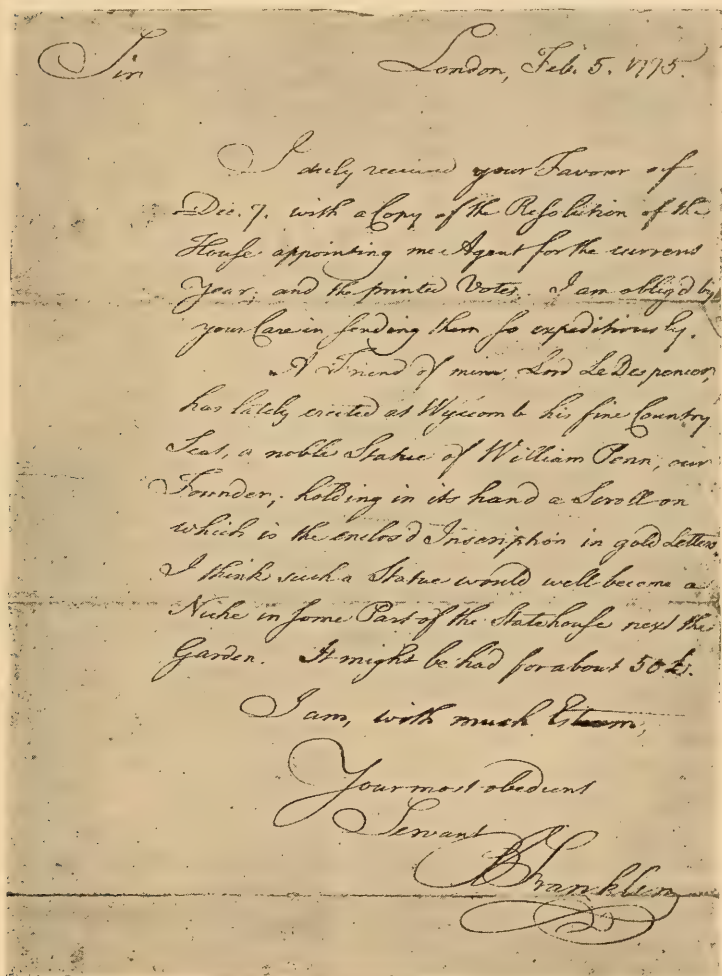 Sir London, Feb. 5. 1775.
I duly received your Favour of
Dec. 7. with a Copy of the Resolution of the
House appointing me Agent for the current
Year; and the printed Votes. I am oblig'd by
your Care in sending them so expeditiously.
A Friend of mine, Lord Le Despencer,
has lately erected at Wycomb his fine Country
Seat, a noble Statue of William Penn, our
Founder, holding in its hand a Scroll on
which is the enclos'd Inscription in gold Letters.
I think such a Statue would well become a
Niche in some Part of the Statehouse next the
Garden. It might be had for about 50£.
I am, with much Esteem,
Your most obedient
Servant
B Franklin